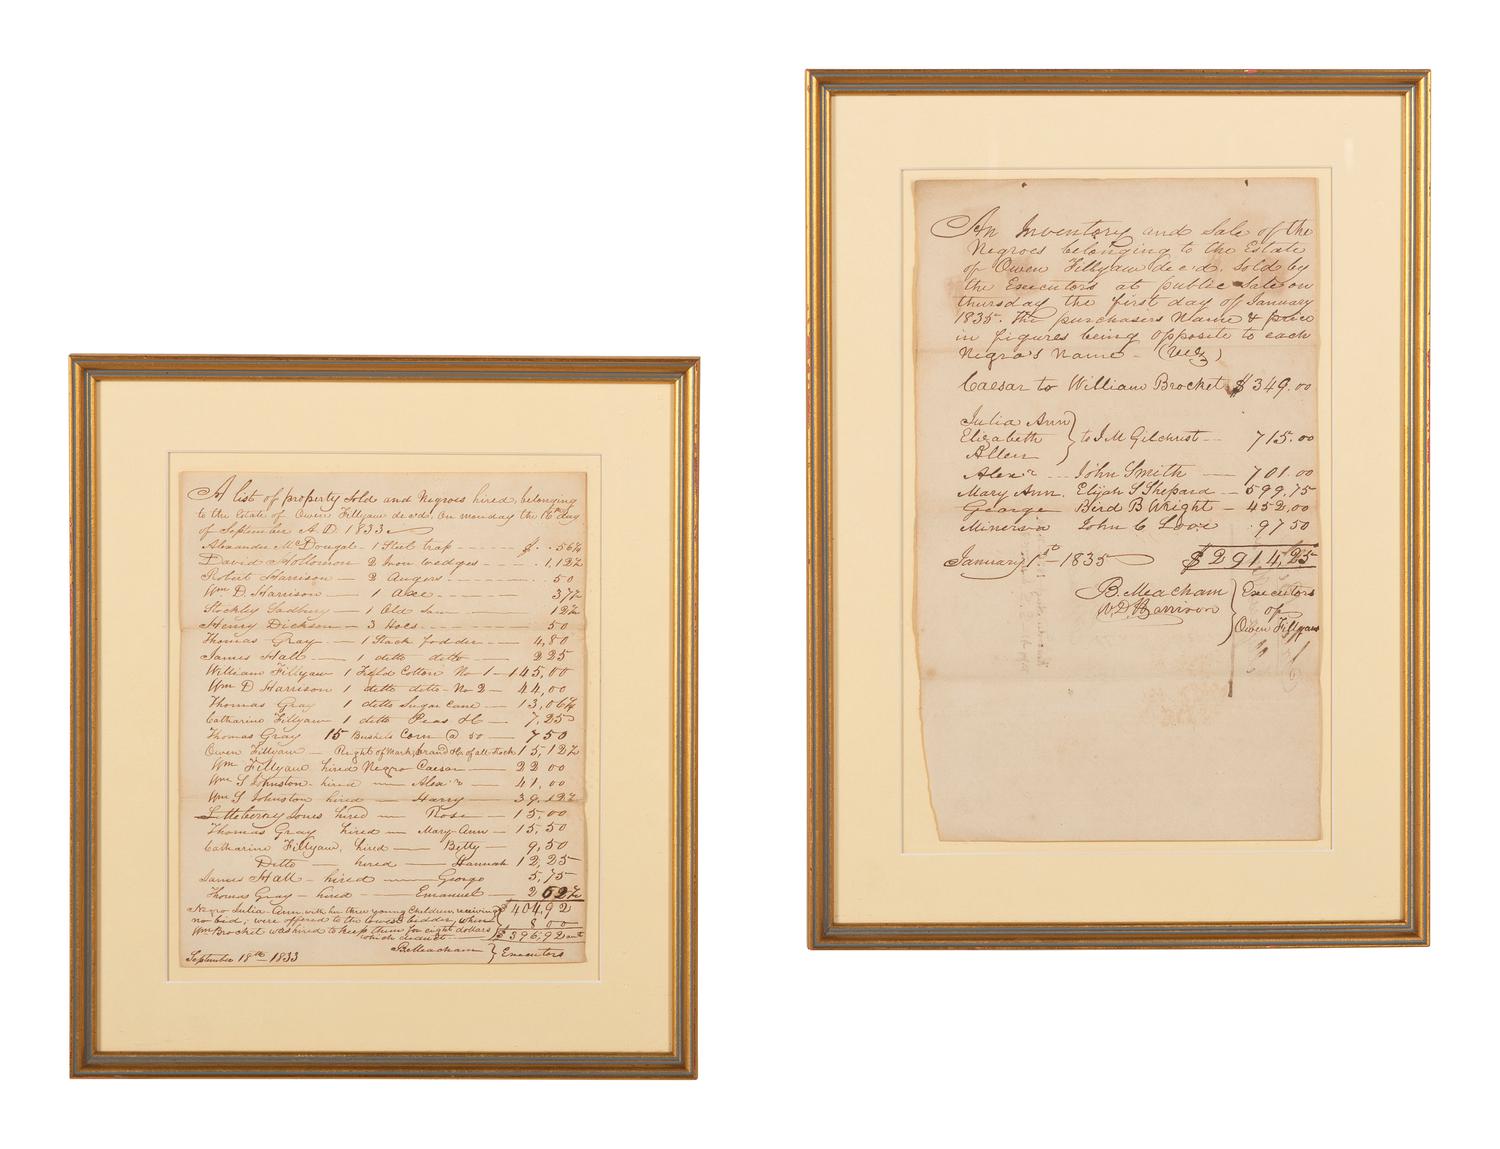 A list of property Sold and Negroes hired, belonging
to the Estate of Owen Fillyaw dec'd, on monday the 16th day
of September A. D. 1833
Alexander McDougal - 1 Steel trap - $ . . 56¼
David Hollomon 2 Iron wedges - 1,12½
Robert Harrison - 2 Augers - 50
Wm D. Harrison - 1 Axe - 37½
Stockley Sadbury - 1 Old Saw - 12½
Henry Dickson - 3 Hoes - 50
Thomas Gray - 1 Stack fodder - 4,80
James Hall - 1 ditto ditto - 2 25
William Fillyaw 1 Field Cotton No 1 - 145,00
Wm D Harrison 1 ditto ditto - No 2 - 44,00
Thomas Gray 1 ditto Sugar Cane - 13,06¼
Catharine Fillyaw 1 ditto Peas &c - 7,25
Thomas Gray 15 Bushels Corn @ 50 - 7 50
Owen Fillyaw - Right of Mark, brand &c of all Stock 15,12½
Wm Fillyaw hired Negro Caesar - 22 00
Wm S Johnston hired - Alexr - 41,00
Wm S Johnston hired - Harry - 39,12½
Littleberry Jones hired - Rose - 15,00
Thomas Gray hired - Mary-Ann - 15,50
Catharine Fillyaw, hired - Betty - 9,50
Ditto - hired - Hannah 12,25
James Hall - hired - George 5,75
Thomas Gray - hired - Emanuel - 2 62½
Negro Julia-Ann with her three young Children, receiving $404,92
no bid; were offered to the lowest bidder, when
Wm Brocket was hired to keep them for eight dollars 8 00
which deduct - $396,92
B. Meacham } Executors
September 18th 1833
An Inventory and Sale of the
Negroes belonging to the Estate
of Owen Fillyaw dec'd. Sold by
the Executors at public Sale on
thursday the first day of January
1835. The purchasers Name & price
in figures being opposite to each
Negro's Name - (Viz)
Caesar to William Brocket $349.00
Julia Ann
Elizabeth } to J. M Gilchrist - 715.00
Allen
Alexr - John Smith - 701.00
Mary Ann. Elijah S Shepard - 599,75
George Bird B Wright - 452,00
Minerva John C Love 97 50
January 1st 1835 $2914,25
B. Meacham } Executors
W D Harrison of
Owen Fillyaw